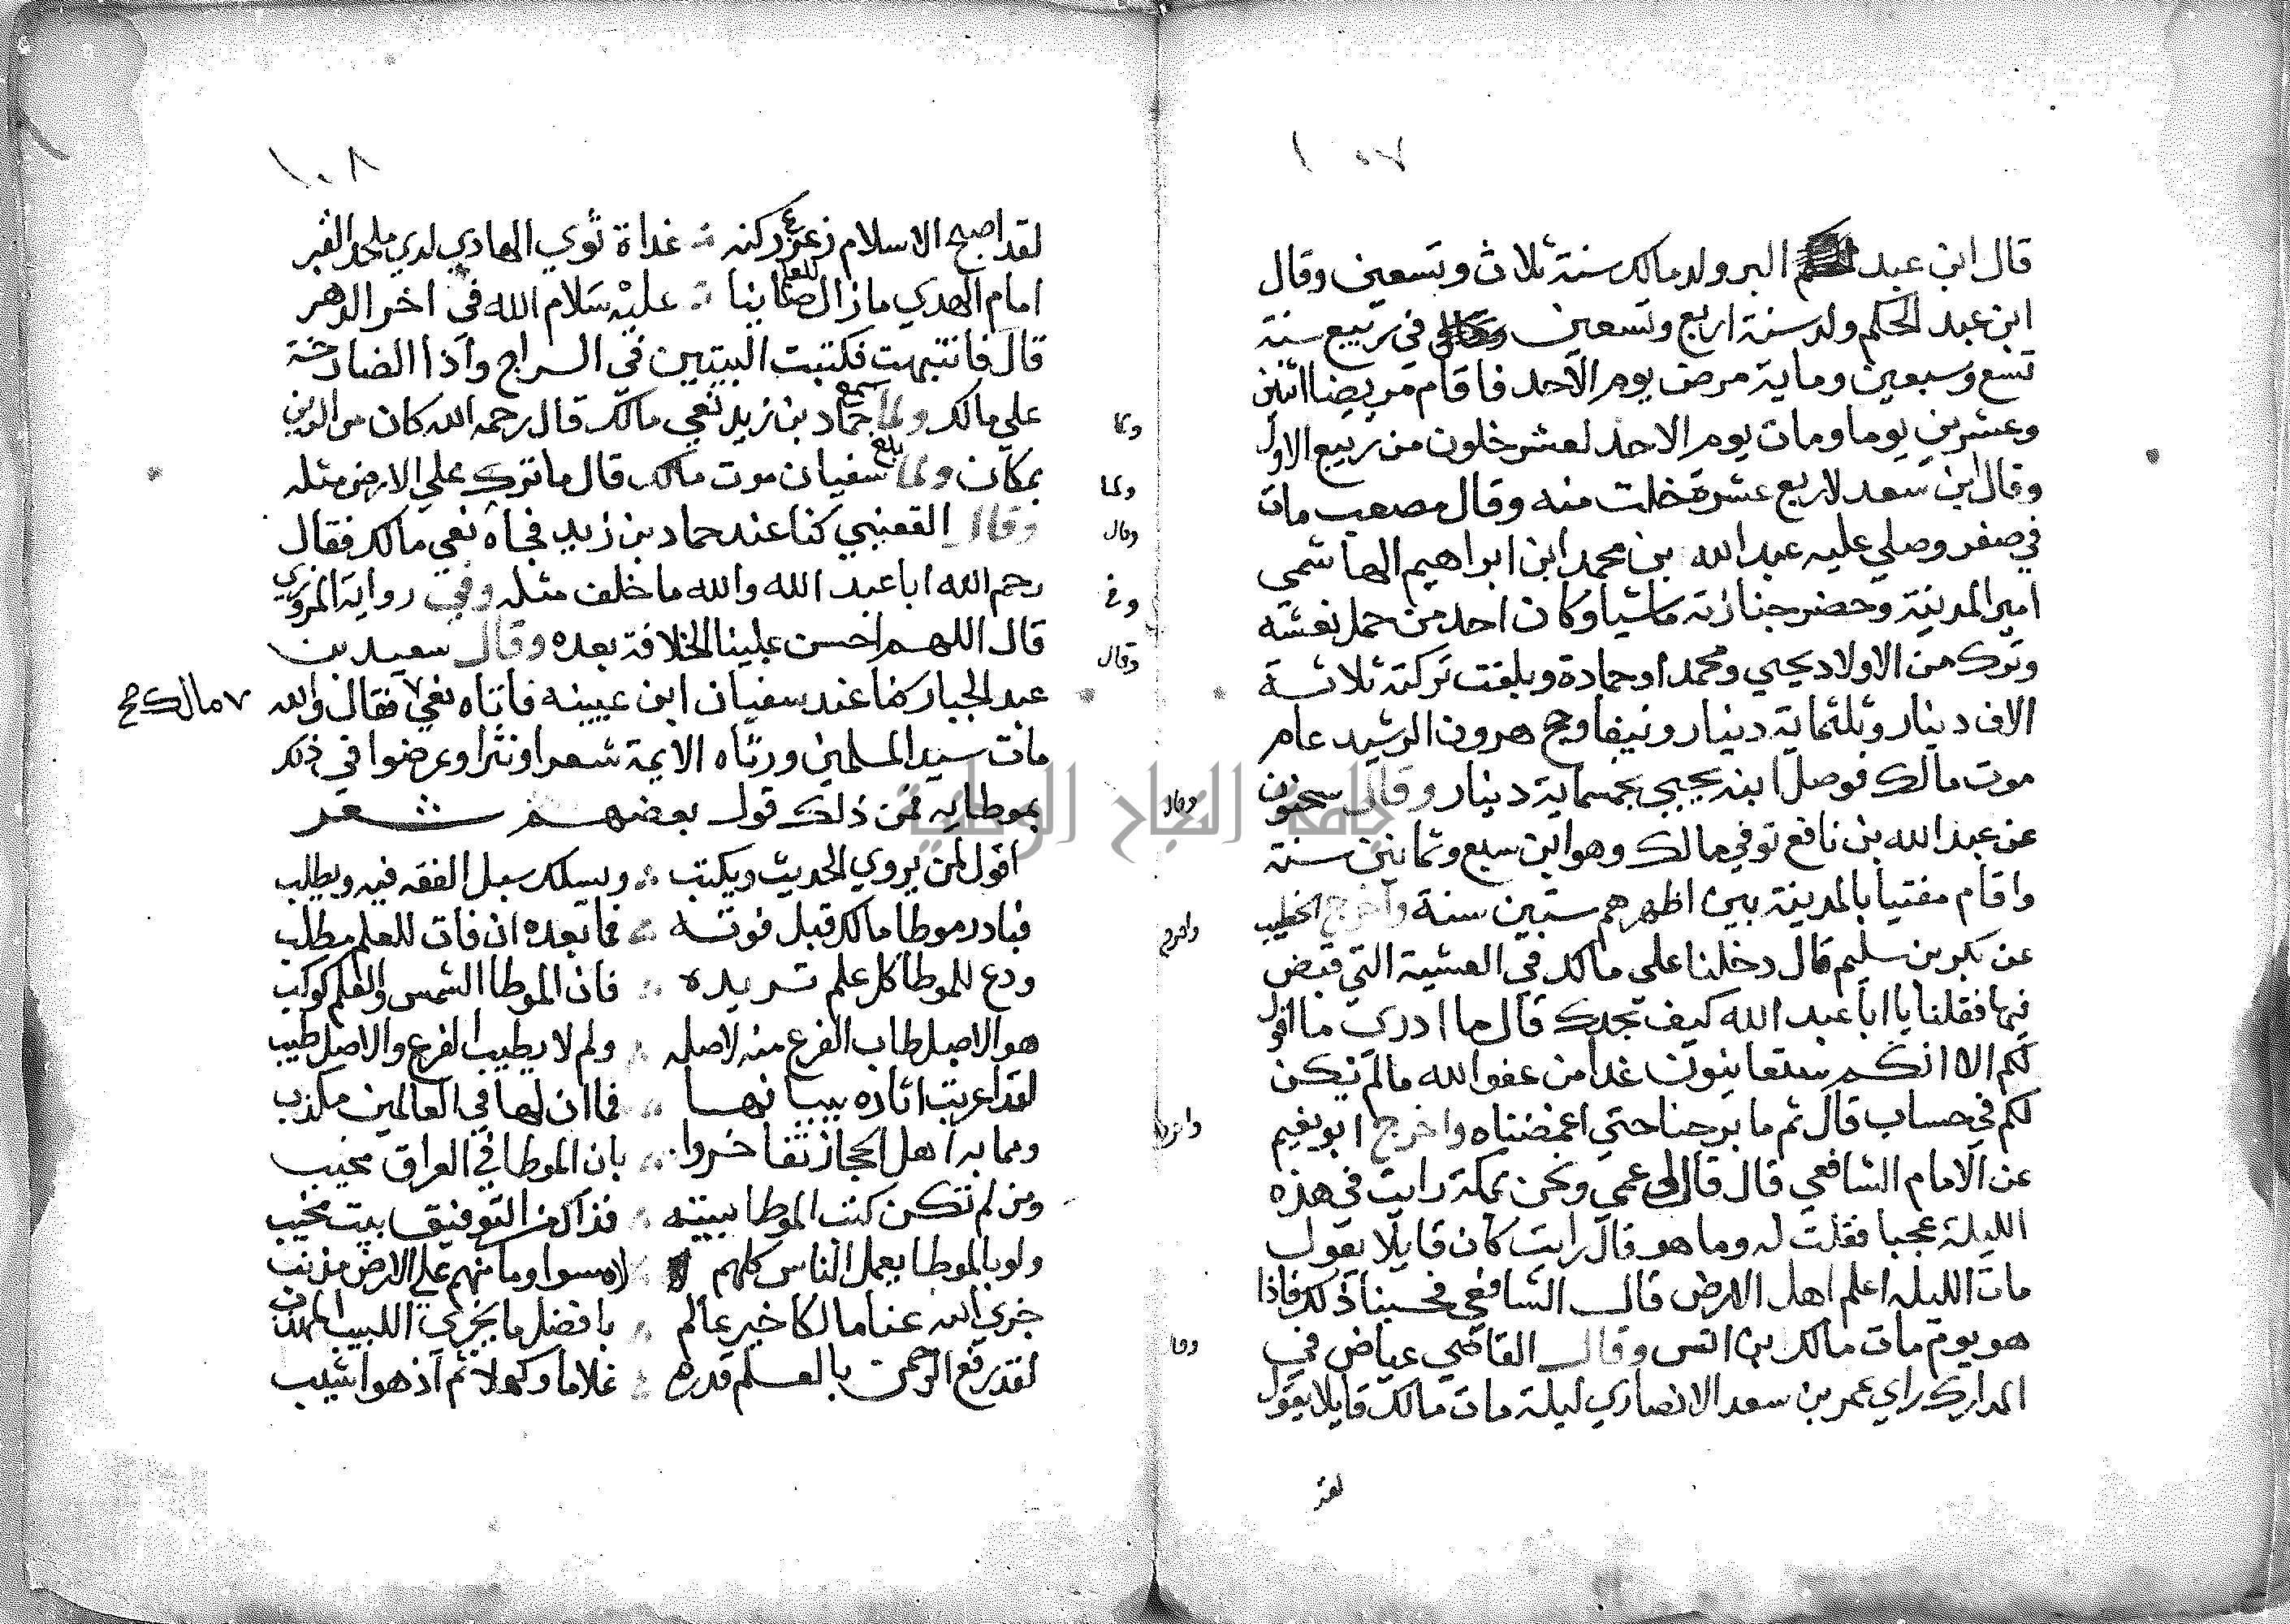 ١٠٧
قال ابن عبد البر ولد مالك سنة ثلاث وتسعين وقال
ابن عبد الحكم ولد سنة اربع وتسعين في ربيع سنة
تسع وسبعين وماية مرض يوم الاحد فاقام مريضا اثنين
وعشرين يوما ومات يوم الاحد لعشر خلون من ربيع الاول
وقال ابن سعد لاربع عشرة خلت منه وقال مصعب مات
في صفر وصلي عليه عبد الله بن محمد ابن ابراهيم الهاشمي
امير المدينة وحضر جنازته ماشيا وكان احد من حمل نعشه
وترك من الاولاد يحيي ومحمدا وحمادة وبلغت تركته ثلاثة
الاف دينار وثلثماية دينار ونيفا وحج هرون الرشيد عام
موت مالك فوصل ابنه يحيي بخمسماية دينار وقال سحنون
عن عبد الله بن نافع توفي مالك وهو ابن سبع وثمانين سنة
واقام مفتيا بالمدينة بين اظهرهم ستين سنة واخرج الخطيب
عن بكر بن سليم قال دخلنا علي مالك في العشية التي قبض
فيها فقلنا يا ابا عبد الله كيف تجدك قال ما ادري ما اقول
لكم الا انكم ستعاينون غدا من عفو الله ما لم يكن
لكم في حساب قال ثم ما برحنا حتي اغمضناه واخرج ابو نعيم
عن الامام الشافعي قال قال لي عمي ونحن بمكة رايت في هذه
الليلة عجبا فقلت له وما هو قال رايت كان قايلا يقول
مات الليله اعلم اهل الارض قال الشافعي فحسبنا ذلك فاذا
هو يوم مات مالك بن انس وقال القاضي عياض في
المدارك راي عمر بن سعد الانصاري ليلة مات مالك قايلا يقول
لقد
وقال
واخرج
واخرج
وقا
١٠٨
لقد اصبح الاسلام زعزع ركنه غداة ثوي الهادي لدي ملحد القبر
امام الهدي ما زال للعلم صاينا عليه سلام الله في اخر الدهر
قال فانتبهت فكتبت البيتين في السراج واذا الصارخة
علي مالك ولما سمع حماد بن زيد نعي مالك قال رحمه الله كان من الدين
بمكان ولما بلغ سفيان موت مالك قال ما ترك علي الارض مثله
وقال القعنبي كنا عند حماد بن زيد فجاه نعي مالك فقال
رحم الله ابا عبد الله والله ما خلف مثله وفي رواية المروزي
قال اللهم احسن علينا الخلافة بعده وقال سعيد بن
عبد الجبار كنا عند سفيان ابن عيينه فاتاه نعي فقال والله
مالك صح
مات سيد المسلمين ورثاه الايمة شعرا ونثرا وعرضوا في ذلك
بموطايه فمن ذلك قول بعضهم شعر
اقول لمن يروي الحديث ويكتب ويسلك سبل الفقه فيه ويطلب
فبادر موطا مالك قبل فوته فما بعده ان فات للعلم مطلب
ودع للموطا كل علم تريده فان الموطا الشمس والعلم كوكب
هو الاصل طاب الفرع منه لاصله ولم لا يطيب الفرع والاصل طيب
لقد اعربت اثاره ببيانها فما ان لها في العالمين مكذب
ومما به اهل الحجاز تفاخروا بان الموطا في العراق محبب
ومن لم تكن كتب الموطا ببيته فذاك من التوفيق بيت مخيب
ولو بالموطا يعمل الناس كلهم لامسوا وما منهم علي الارض مذنب
جزي الله عنا مالكا خير عالم بافضل ما يجزي اللبيب المهذب
لقد رفع الرحمن بالعلم قدره غلاما وكهلا ثم اذ هو اشيب
ولما
ولما
وقال
وفي
وقال
جامعة النجاح الوطنية